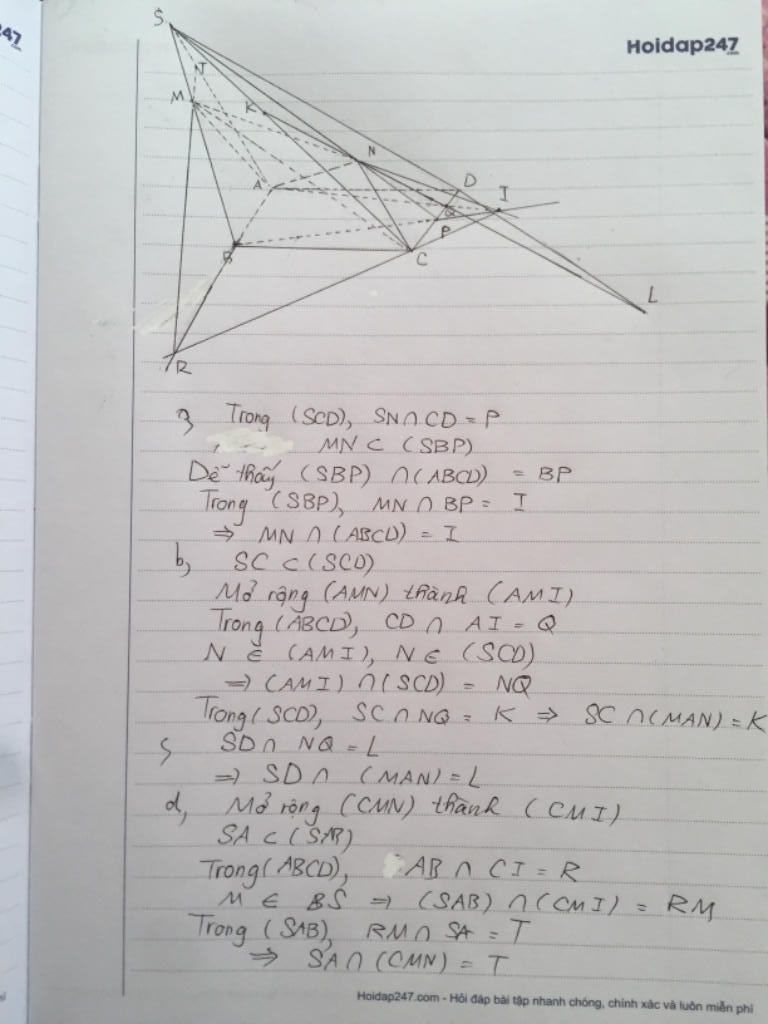 247
.com
Hoidap247
.com
S
T
M
K
N
A
D
I
Q
P
B
C
L
R
a, Trong (SCD), SN∩CD = P
MN ⊂ (SBP)
Dễ thấy (SBP) ∩ (ABCD) = BP
Trong (SBP), MN ∩ BP = I
⇒ MN ∩ (ABCD) = I
b, SC ⊂ (SCD)
Mở rộng (AMN) thành (AMI)
Trong (ABCD), CD ∩ AI = Q
N ∈ (AMI), N ∈ (SCD)
⇒ (AMI) ∩ (SCD) = NQ
Trong (SCD), SC ∩ NQ = K ⇒ SC ∩ (MAN) = K
c, SD ∩ NQ = L
⇒ SD ∩ (MAN) = L
d, Mở rộng (CMN) thành (CMI)
SA ⊂ (SAB)
Trong (ABCD), AB ∩ CI = R
M ∈ BS ⇒ (SAB) ∩ (CMI) = RM
Trong (SAB), RM ∩ SA = T
⇒ SA ∩ (CMN) = T
Hoidap247.com - Hỏi đáp bài tập nhanh chóng, chính xác và luôn miễn phí